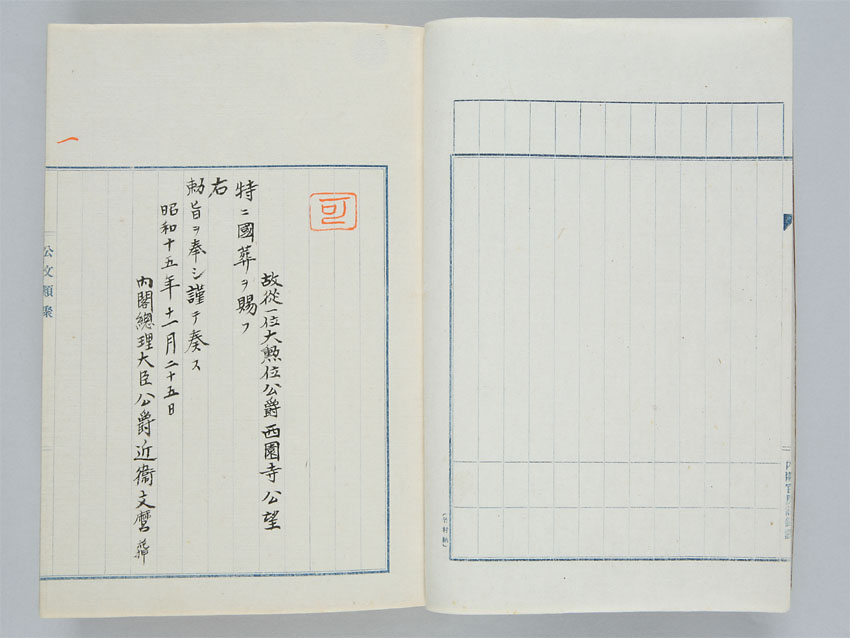 可
故從一位大勲位公爵西園寺公望
特ニ國葬ヲ賜フ
右
勅旨ヲ奉シ謹テ奏ス
昭和十五年十一月二十五日
内閣總理大臣公爵近衞文麿
一
公文類聚